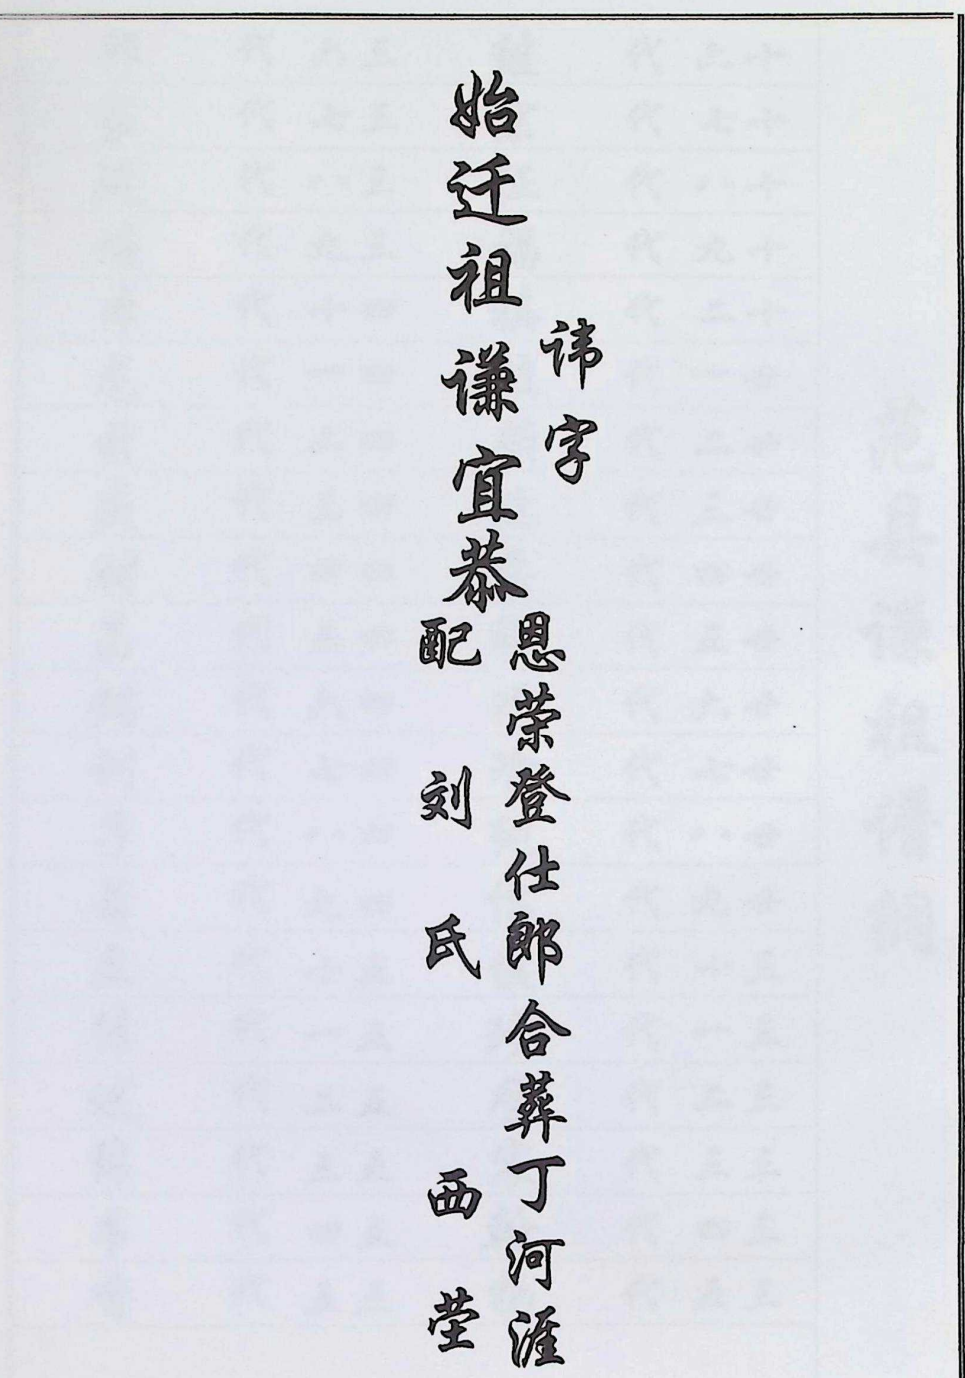 讳字
始迁祖谦宜恭
恩荣登仕郎合葬丁河涯
配刘氏西茔